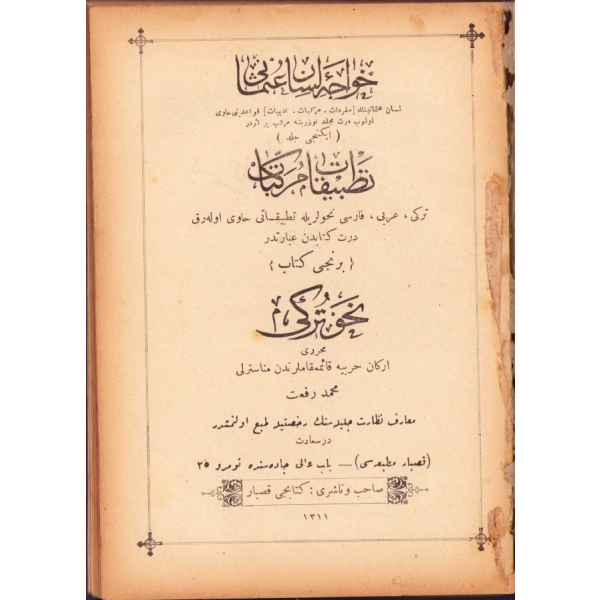 خواجهٔ لسان عثمانی
لسان عثمانینك [مفردات ، مركبات ، ادبیات] قواعدینی حاوی
اولوب درت مجلد اوزرینه مرتب بر اثردر
( ایكنجی جلد )
تطبیقات مركبات
تركی ، عربی ، فارسی نحولریله تطبیقاتی حاوی اوله‌رق
درت كتابدن عبارتدر
{ برنجی كتاب }
نحو تركی
محرری
اركان حربیه قائممقاملرندن مناسترلی
محمد رفعت
معارف نظارت جلیله‌سنك رخصتیله طبع اولنمشدر
درسعادت
(قصبار مطبعه‌سی) — باب عالی جاده‌سنده نومرو ٢٥
صاحب و ناشری : كتابجی قصبار
١٣١١